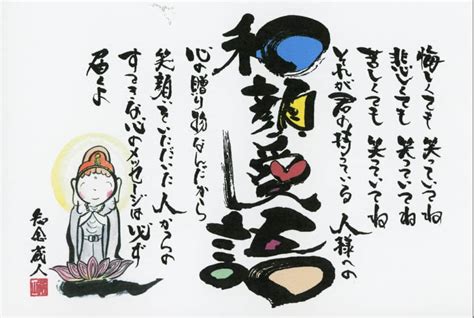 悔しくても 笑っていてね
悲しくても 笑っていてね
苦しくても 笑っていてね
それが君の持っている 人様への
和顔愛語
心の贈り物なんだから
笑顔をいただいた人からの
すてきな心のメッセージは必ず
届くよ